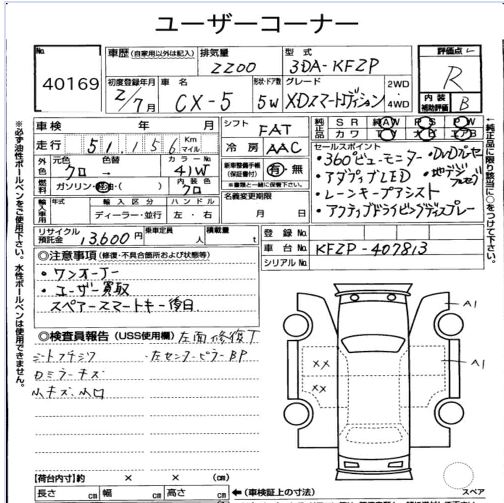 ユーザーコーナー
No.
40169
車歴 (自家用以外は記入)
排気量
2200
型式
3DA-KF2P
評価点
R
初度登録年月
2/7月
車名
CX-5
形状・ドア数
5W
グレード
XDスマートエディション
2WD
4WD
内装
補助評価
B
車検 年 月
走行 51,156 Km マイル
シフト
FAT
冷房
AAC
純正品
SR 純AW PS PW
カワ TV ナビ エアB
外色
元色
クロ→
色替
カラーNo
41W
燃料
ガソリン・軽油・( )
内装色
クロ
新車整備手帳
(保証書付)
有・無
※書類と一緒に保管下さい。
セールスポイント
・360°ビューモニター
・DVDプレーヤー
・アダプブLED
・地デジフルセグ
・レーンキープアシスト
・アクティブドライビングディスプレー
輸入車用
年式
輸入区分
ディーラー・並行
ハンドル
左・右
名義変更期限
月 日
リサイクル預託金
13,600円
乗車定員
人
積載量
t
登録No.
車台No.
KF2P-407813
シリアルNo.
◎注意事項(修復・不具合箇所および状態等)
・ワンオーナー
・ユーザー買取
スペアースマートキー後日
◎検査員報告 (USS使用欄) 左面修復す
シートコゲシワ
左センターピラーBP
Dミラーキズ
小キズ、小凹
A1
A1
XX
XX
スペア
[荷台内寸]約 × × (cm)
長さ cm 幅 cm 高さ cm
←(車検証上の寸法)
※必ず油性ボールペンをご使用下さい。水性ボールペンは使用できません。
↑純正品に限り該当に○をつけて下さい。